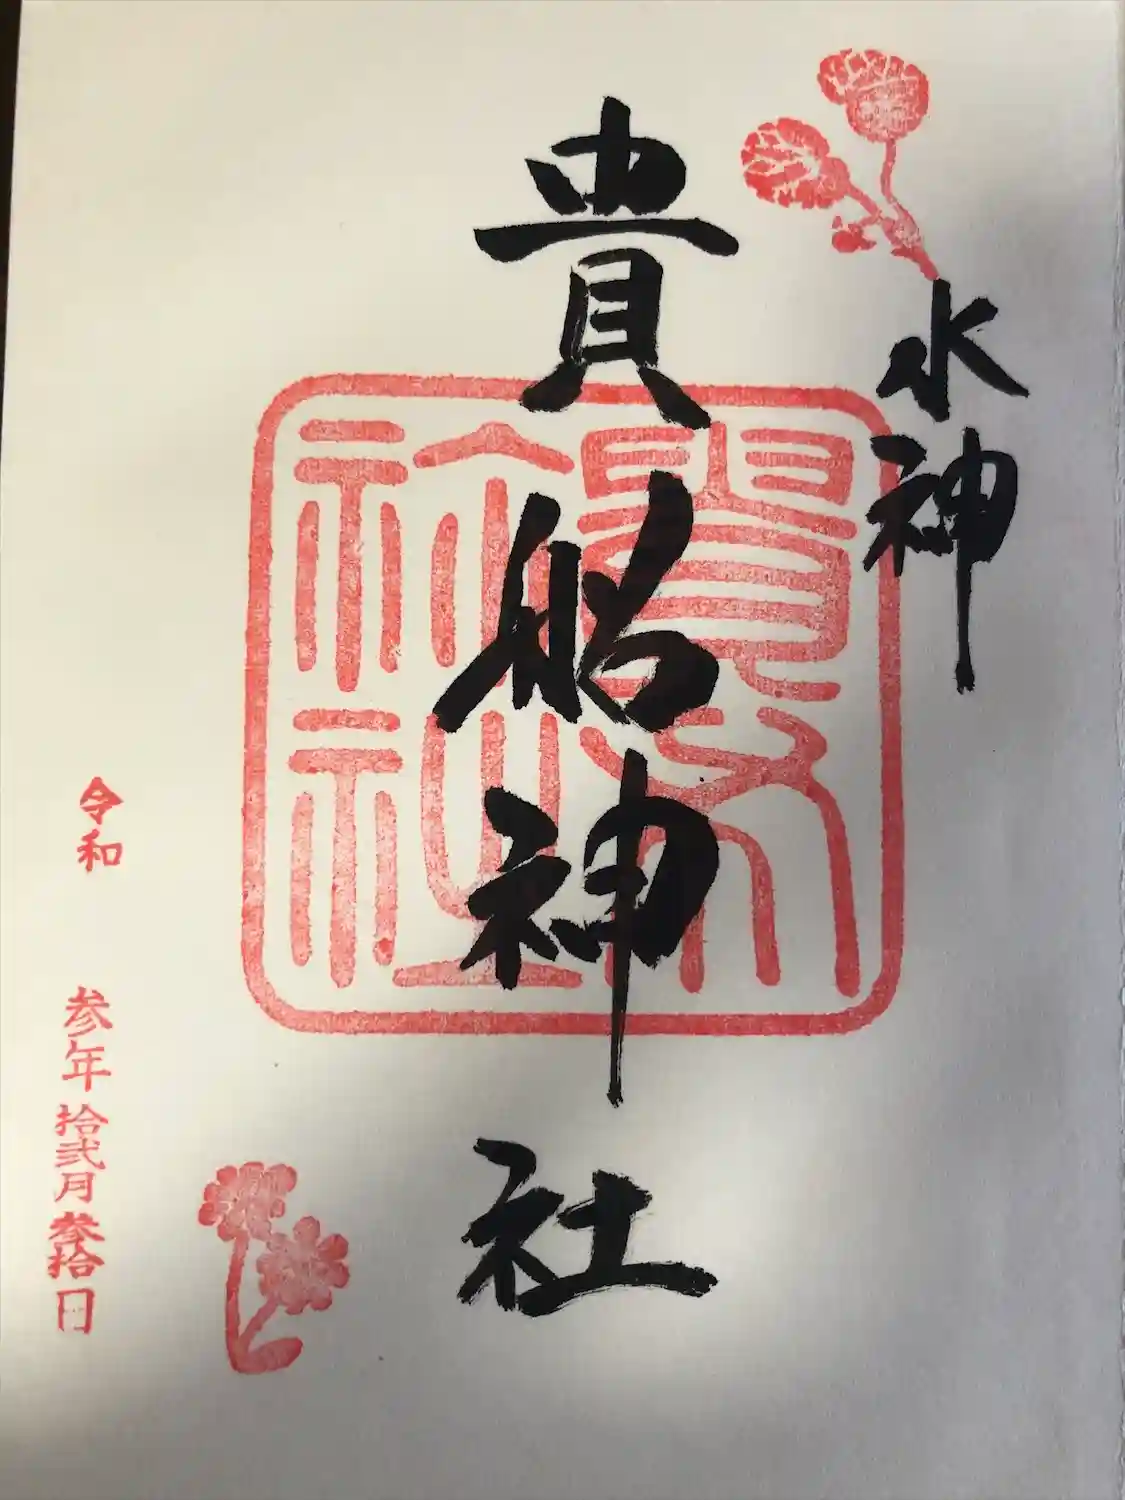 水神
貴船神社
令和 参年拾弐月参拾日